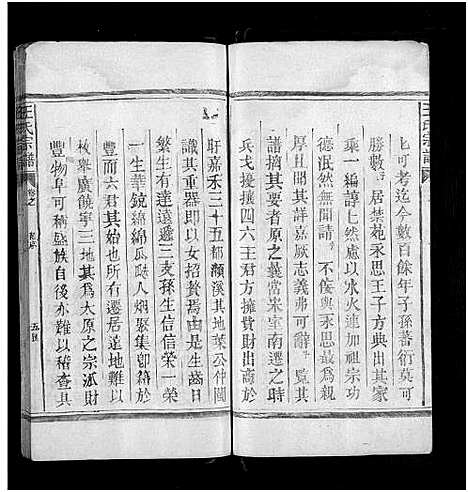 王氏宗譜
匕可考迄今數百餘年子孫蕃衍莫可
勝數居禁苑永思王子方典出其家
乘一編諄匕然處以水火連加祖宗功
德泯然無聞請不侫與永思最為親
厚且聞其詳嘉厥志義弗可辭以
譜摘其要者原之義當宋室南遷之時
兵戈擾攘四六王君方擁貲財出商於
盱嘉禾三十五都瀨溪其地葉公仲圖
識其重器即以女招贅焉由是生齒日
繁生有達遠遜三支孫生信信榮一榮
一生華鏡綿綿瓜瓞人烟聚集卽籍於
豐而六君其始也所有遷居遠地難以
枚舉廣饒寧三地其為太原之宗派財
豐物阜可稱盛族自後亦難以稽查具
王氏宗譜
卷之
五